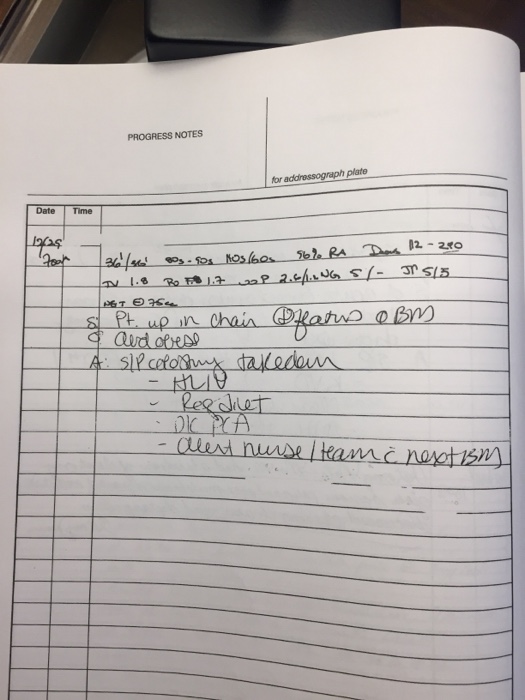 PROGRESS NOTES
for addressograph plate
Date Time
12/25
36¹/ 80s-90s 110s/60s 96% RA 112-290
IV 1.8 PO 1.7 P 2.6/ NG 5/- JP 5/5
NGT 75cc
S: Pt. up in chair ⊕flatus BM
O
A: S/P colostomy takedown
- HLIV
- Reg diet
- DC PCA
- alert nurse/team c̄ next BM